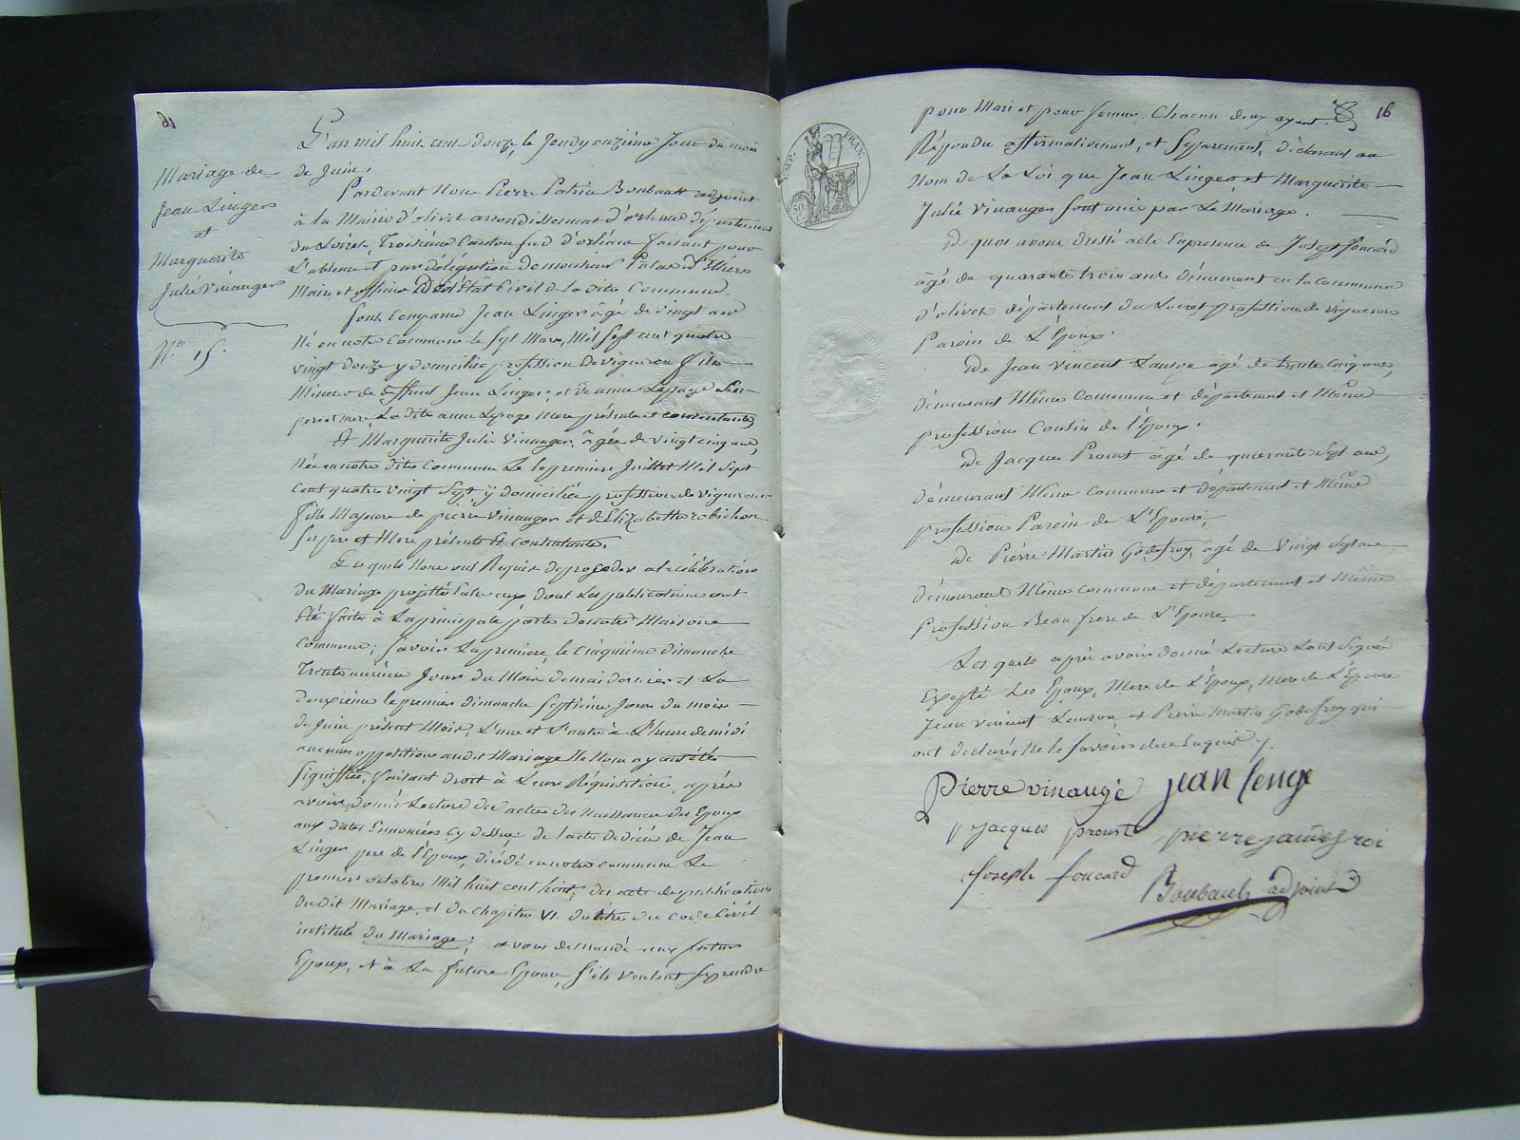 Mariage de
Jean Linger
et
Marguerite
Julie Vinauger
N.° 15.
L'an mil huit cent douze, le Jeudy onzième Jour du mois
de Juin,
Pardevant Nous Pierre Patrice Boubault adjoint
à la Mairie d'olivet arrondissement d'orleans département
du Loiret, Troisième Canton sud d'orléans faisant pour
L'absence et par délégation de monsieur
Maire et officier De l'état Civil de la dite Commune.
Sont Comparus Jean Linger âgé de vingt ans
Né en notre Commune le sept Mars, Mil sept cent quatre
vingt douze y domicilié profession de vigneron fils
Mineur de deffunt Jean Linger, et de anne Lepage ses
pere et mere, La dite anne Lepage Mere présente et consentante
Et Marguerite Julie Vinauger, âgée de vingt cinq ans,
Née en notre dite Commune Le premier Juillet Mil sept
Cent quatre vingt sept, y domiciliée profession de vigneronne
fille Majeure de pierre Vinauger et d'Elizabeth robichon
ses pere et Mere présents et consentants.
Lesquels Nous ont Requis de proceder à la célébration
du Mariage projetté Entre eux dont Les publications ont
Été faites à La principale porte de notre Maison
Commune; Savoir La première, le cinquième dimanche
Trente unième Jour du Mois de mai dernier et La
deuxième le premier dimanche septième Jour du mois
de Juin présent Mois, L'une et L'autre à L'heure de midi
aucune opposition audit Mariage Ne Nous ayant été
signiffiée, faisant droit à Leur Réquisition, après
avoir donné Lecture des actes de Naissance des Epoux
aux dates Enoncées Cy dessus; de l'acte de décès de Jean
Linger pere de l'Epoux, décédé en notre commune Le
premier octobre Mil huit cent huit, des actes de publication
du dit Mariage, et du Chapitre VI. du titre du Code Civil
intitulé du Mariage; avons demandé aux futurs
Epoux, et à La future Epouse, s'ils veulent se prendre
16
pour Mari et pour femme. Chacun deux ayant
Répondu affirmativement, et Separément, déclarons au
Nom de La Loi que Jean Linger et Marguerite
Julie Vinauger sont unis par Le Mariage.
de quoi avons dressé acte En presence de Joseph foucard
âgé de quarante trois ans demeurant en la commune
d'olivet département du Loiret profession de vigneron
Parein de L'Epoux.
De Jean Vincent Lauson âgé de trente cinq ans,
demeurant Même Commune et département et Même
profession Cousin de l'Epoux.
De Jacques Proust âgé de quarante sept ans,
demeurant Même Commune et département et Même
profession Parein de L'Epouse,
De Pierre Martin Godefroy, agé de Vingt sept ans
demeurant Même Commune et département et Même
Profession Beau frere de L'Epouse,
Les quels après avoir donné Lecture Sont signés
Excepté Les Epoux, Mere de L'Epoux, Mere de L'Epouse
Jean Vincent Lauson, et Pierre Martin Godefroy qui
ont déclarés Ne le savoir de ce Enquis
Pierre vinaugé jean lenge
Jacques proust pierre jaudefroi
Joseph foucard Boubault adjoint